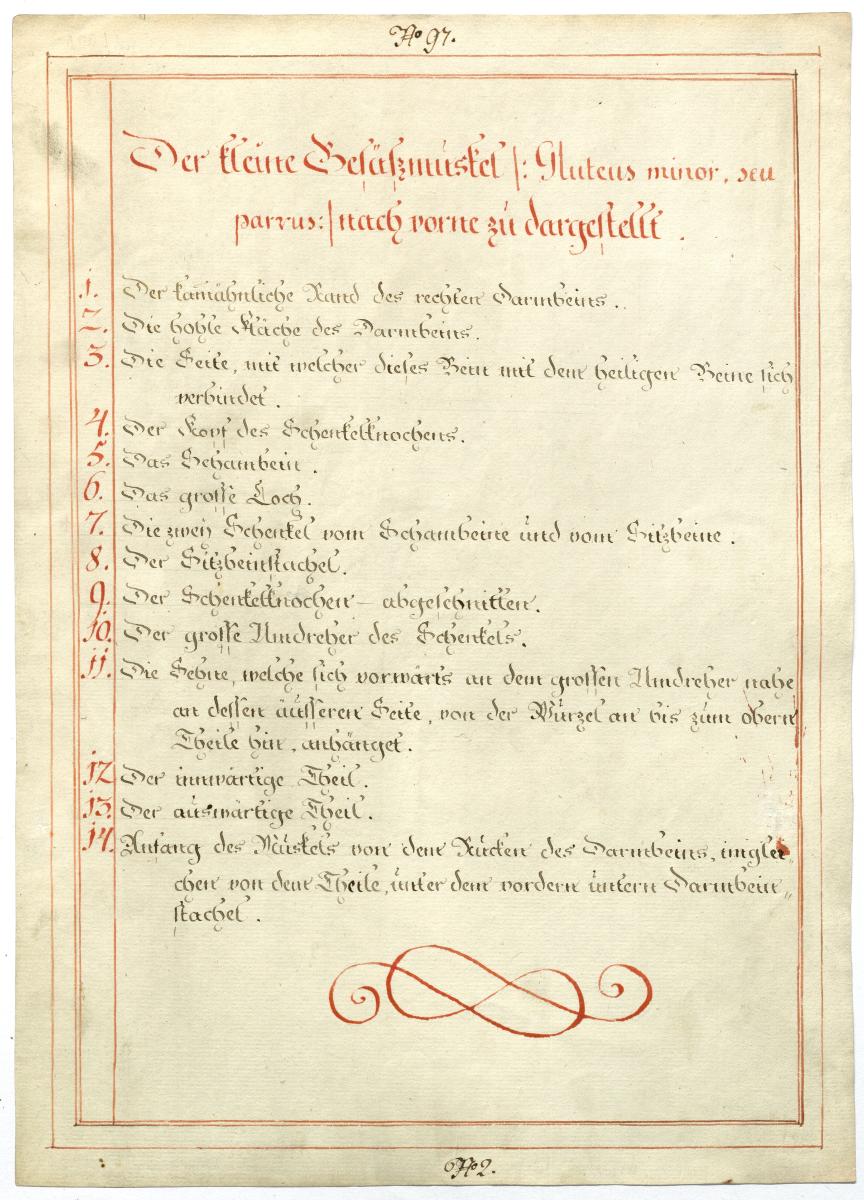 No 97.
Der kleine Gesäßmuskel /: Gluteus minor, seu
parvus:/ nach vorne zu dargestellt.
1. Der kam̅ähnliche Rand des rechten Darmbeins.
2. Die hohle Fläche des Darmbeins.
3. Die Seite, mit welcher dieses Bein mit dem heiligen Beine sich
verbindet.
4. Der Kopf des Schenkelknochens.
5. Das Schambein.
6. Das grosse Loch.
7. Die zwey Schenkel vom Schambeine und vom Sitzbeine.
8. Der Sitzbeinstachel.
9. Der Schenkelknochen – abgeschnitten.
10. Der grosse Umdreher des Schenkels.
11. Die Sehne, welche sich vorwärts an dem grossen Umdreher nahe
an dessen äusseren Seite, von der Wurzel an bis zum obern
Theile hin, anhänget.
12. Der innwärtige Theil.
13. Der auswärtige Theil.
14. Anfang des Muskels von dem Rücken des Darmbeins, imglei-
chen von dem Theile, unter dem vordern untern Darmbein„
stachel.
No 2.